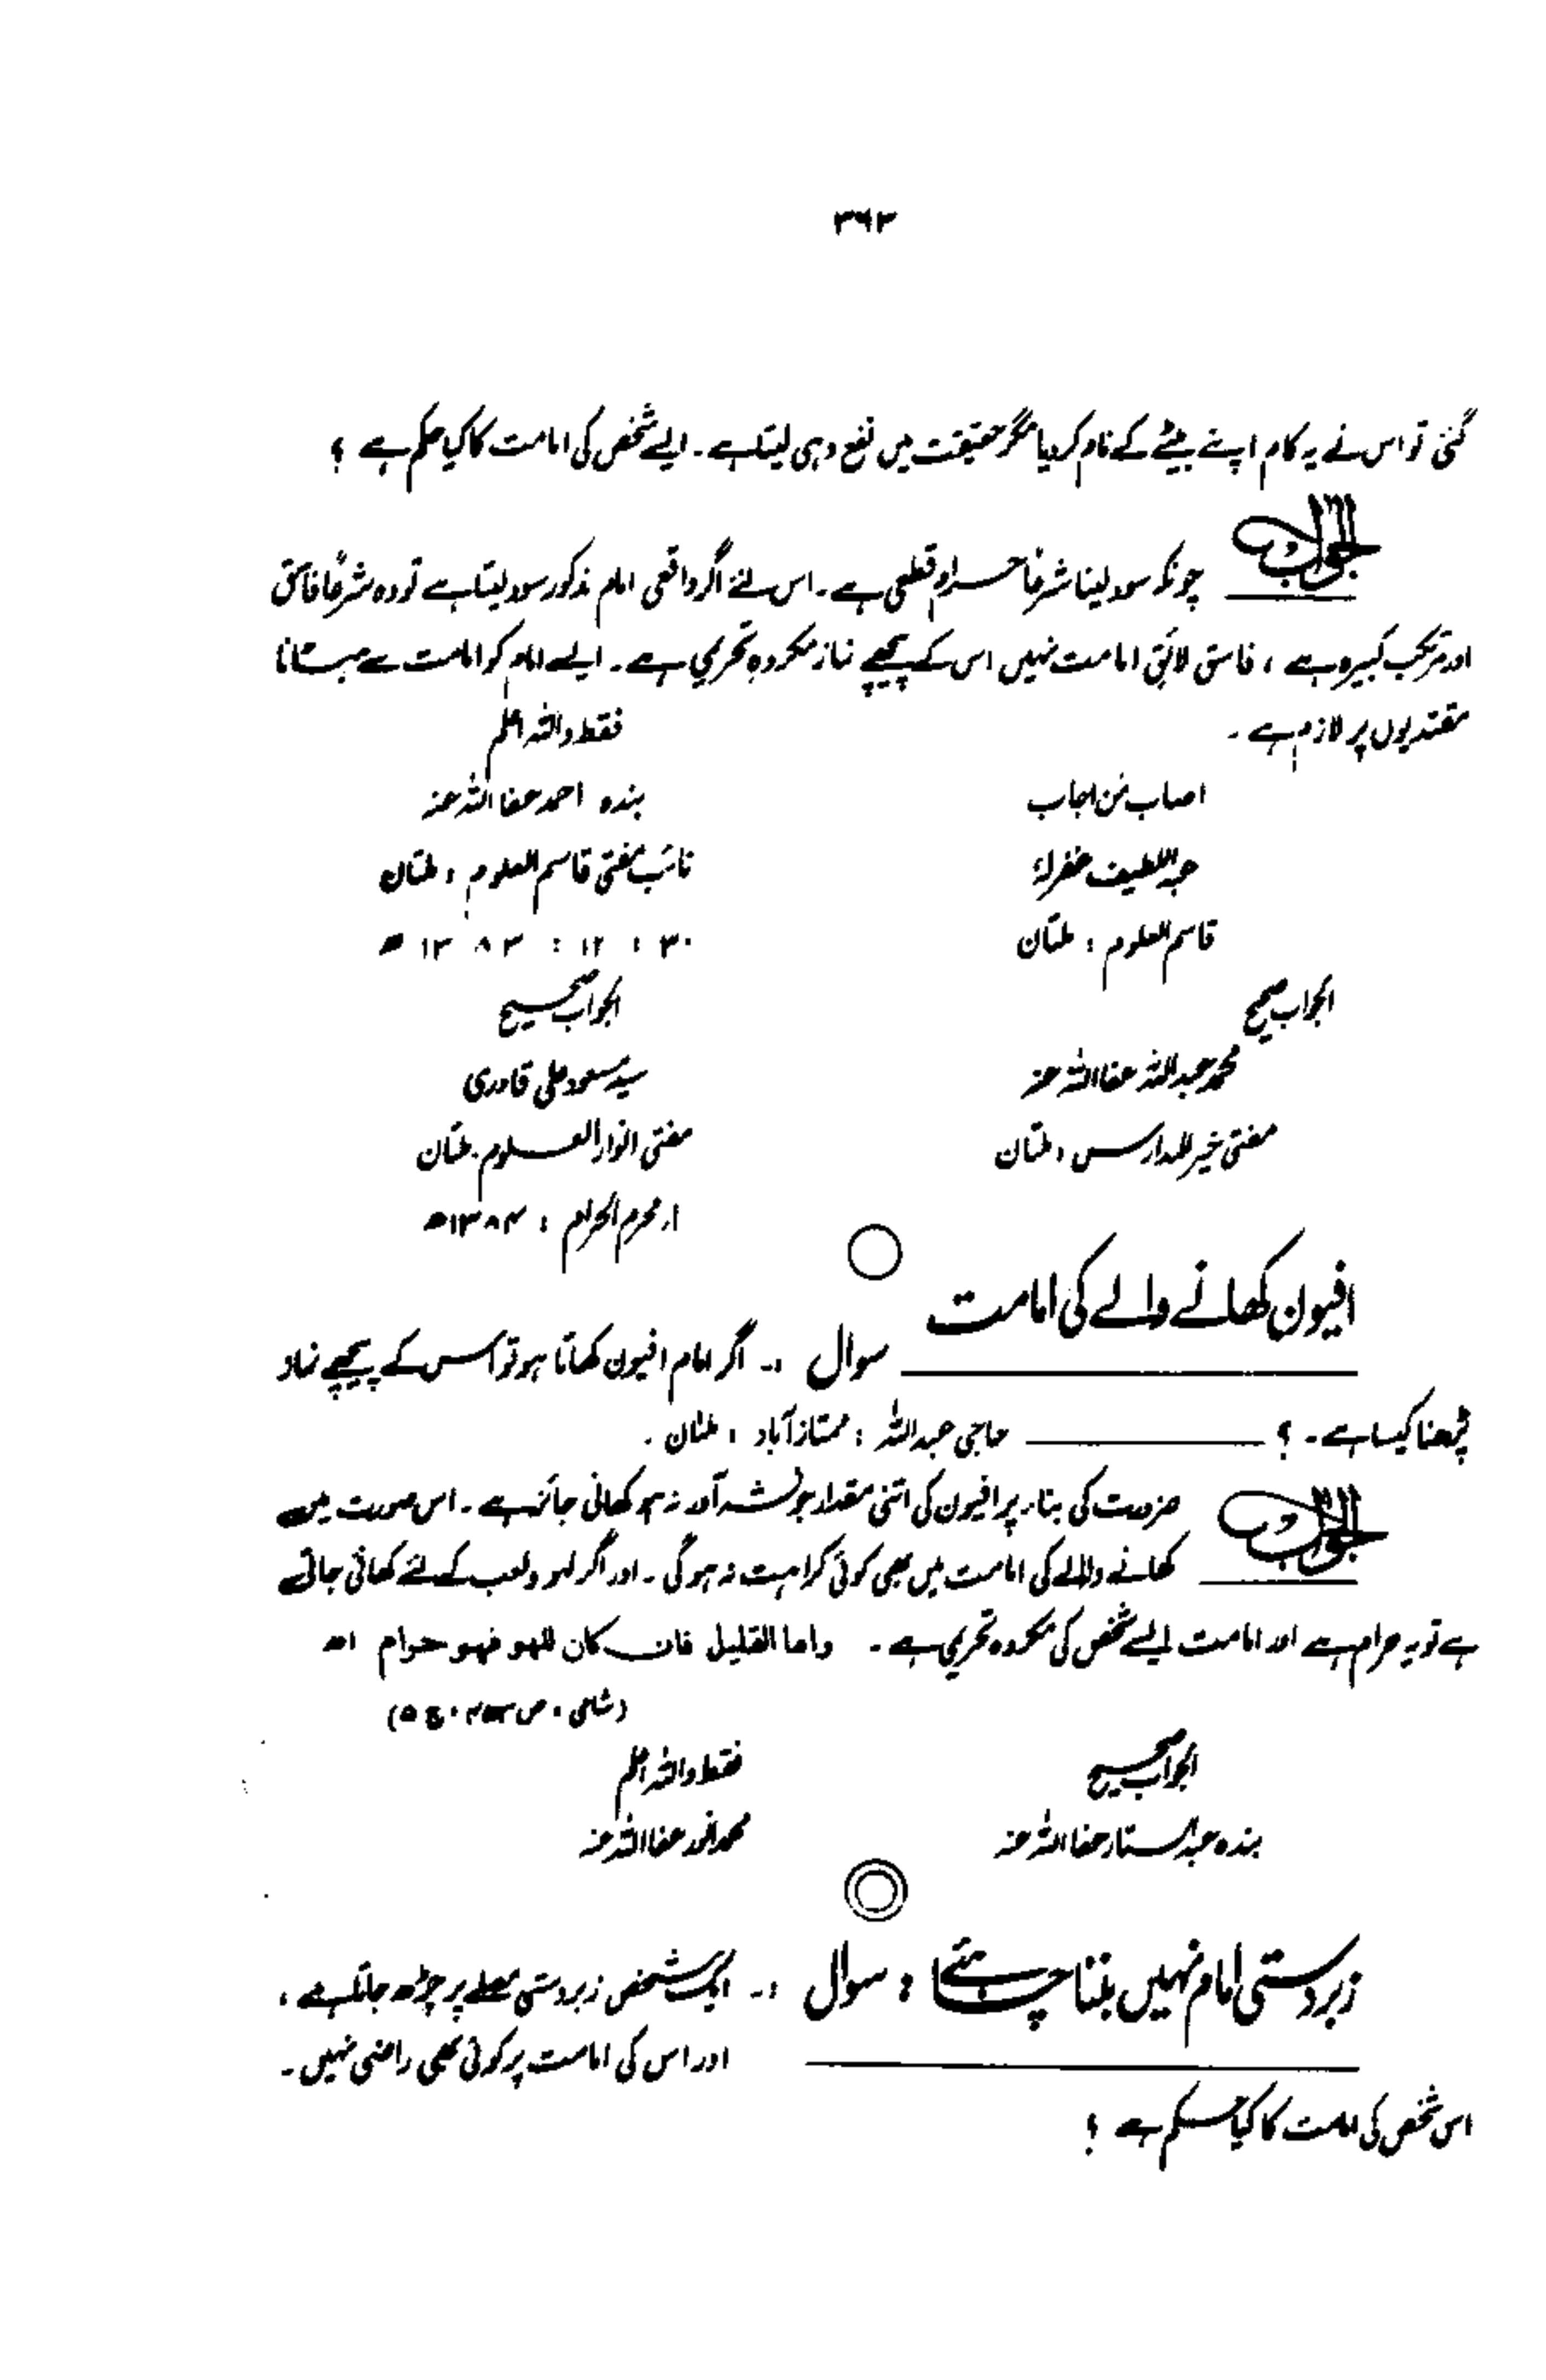 ۳۶۳
گئی تو اس نے یہ کام اپنے بیٹے کے نام کر دیا مگر حقیقت میں نفع وہی لیتا ہے ۔ ایسے شخص کی امامت کا کیا حکم ہے ؟
الجواب
چونکہ سود لینا شرعاً حرام قطعی ہے ۔ اس لئے اگر واقعی امام مذکور سود لیتا ہے تو وہ شرعاً فاسق
اور مرتکب کبیرہ ہے ، فاسق لائق امامت نہیں اس کے پیچھے نماز مکروہ تحریمی ہے ۔ ایسے امام کو امامت سے ہٹانا
مقتدیوں پر لازم ہے ۔
فقط واللہ اعلم
اصاب من اجاب
بندہ احمد عفا اللہ عنہ
عبداللطیف غفرلہٗ
نائب مفتی قاسم العلوم ، ملتان
قاسم العلوم : ملتان
۳۰ : ۱۲ : ۱۳۸۳ ھ
الجواب صحیح
الجواب صحیح
محمد عبداللہ عفا اللہ عنہ
سید مسعود علی قادری
مفتی خیر المدارس ، ملتان
مفتی انوار العلوم ۔ ملتان
۱ر محرم الحرام : ۱۳۸۴ھ
افیون کھانے والے کی امامت
سوال :۔ اگر امام افیون کھاتا ہو تو اس کے پیچھے نماز
پڑھنا کیسا ہے ۔ ؟ حاجی عبداللہ : ممتاز آباد ، ملتان ۔
الجواب
ضرورت کی بناء پر افیون کی اتنی مقدار جو نشہ آور نہ ہو کھانی جائز ہے ۔ اس صورت میں
کھانے والے کی امامت میں بھی کوئی کراہت نہ ہو گی ۔ اور اگر لہو ولعب کے لئے کھائی جاتی
ہے تو یہ حرام ہے اور امامت ایسے شخص کی مکروہ تحریمی ہے ۔ واما القليل فان كان للهو فهو حرام اھ
(شامی ، ص ، ج ۵)
الجواب صحیح
فقط واللہ اعلم
بندہ عبدالستار عفا اللہ عنہ
محمد انور عفا اللہ عنہ
زبردستی امام نہیں بننا چاہئے : سوال :۔ ایک شخص زبردستی مصلے پر چڑھ جاتا ہے ،
اور اس کی امامت پر کوئی بھی راضی نہیں ۔
اس شخص کی امامت کا کیا حکم ہے ؟